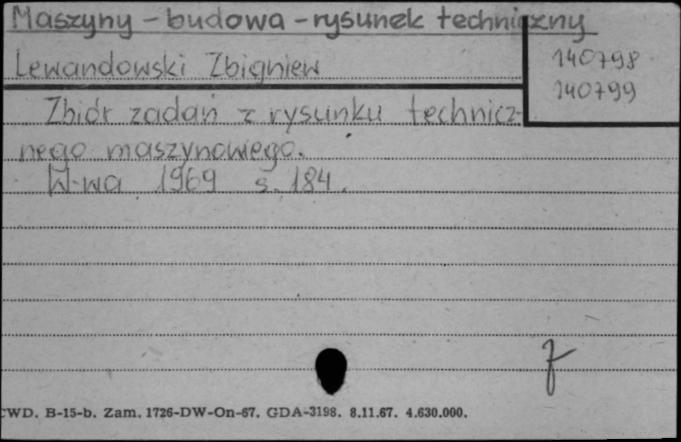 Maszyny - budowa - rysunek techniczny
Lewandowski Zbigniew
140798
140799
Zbiór zadań z rysunku technicz-
nego maszynowego.
W-wa 1969 s. 184.
CWD. B-15-b. Zam. 1726-DW-On-67. GDA-3198. 8.11.67. 4.630.000.